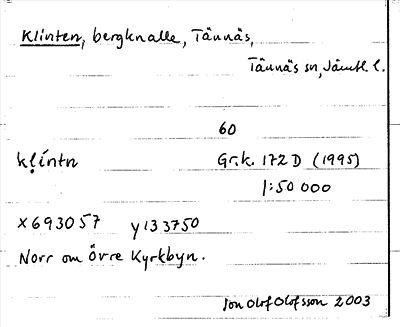 Klinten, bergknalle, Tännäs,
Tännäs sn, Jämtl l.
60
kḷíntn Gr.k. 172D (1995)
1:50 000
x693057 y133750
Norr om Övre Kyrkbyn.
Jon Olof Olofsson 2003